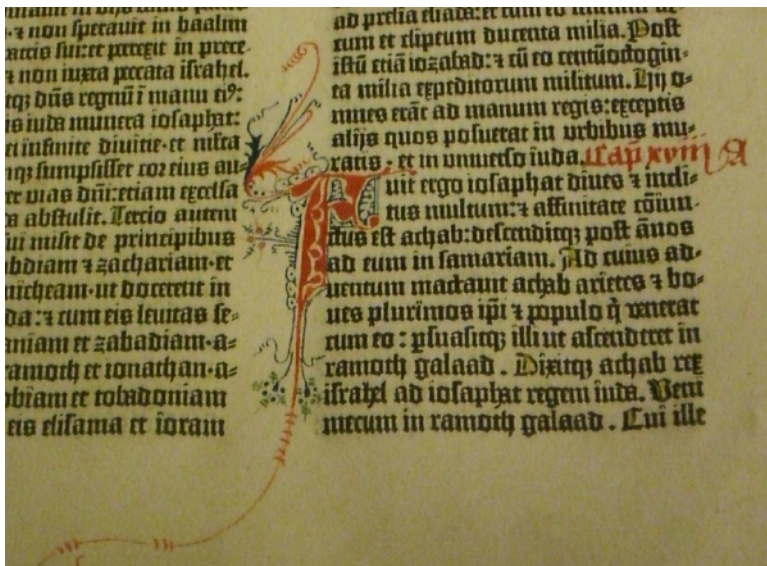 . ⁊ non sperauit in baalim
patris sui: et perrexit in prece-
⁊ non iuxta peccata israhel.
tq; dn̄s regnū ī manu ei9:
is iuda munera iosaphat:
ei infinite diuitie· et m̄lta
nq; sumpsisset cor eius au-
er vias dn̄i: etiam excelsa
s abstulit. Tercio autem
ui misit de principibus
bdiam ⁊ zachariam· et
micheam· ut docerent in
da: ⁊ cum eis leuitas se-
aniam et zabadiam· a-
ramoth et ionathan· a-
obiam et tobadoniam
eis elisama et ioram
ad prelia eliada: et cum eo
cum et clipeum ducenta milia. Post
istū etiā iozabad: ⁊ cū eo centūoctogin-
ta milia expeditorum militum. Hij o-
mnes erāt ad manum regis: exceptis
alijs quos posuerat in urbibus mu-
ratis· et in vniuerso iuda. Cap xviij A
Fuit ergo iosaphat diues ⁊ incli-
tus multum: ⁊ affinitate cōiun-
ctus est achab: descenditq; post ānos
ad eum in samariam. Ad cuius ad-
uentum mactauit achab arietes ⁊ bo-
ues plurimos ip̄i ⁊ populo q̇ venerat
cum eo: p̱suasitq; illi ut ascenderet in
ramoth galaad. Dixitq; achab rex
israhel ad iosaphat regem iuda. Veni
mecum in ramoth galaad. Cui ille